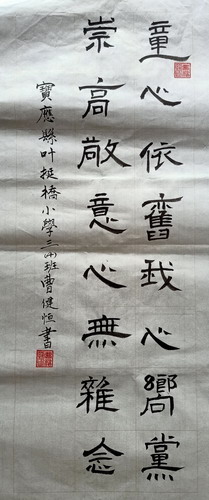 童心依舊我心嚮黨
崇高敬意心無雜念
寶應縣叶挺橋小學三班曹健恒書